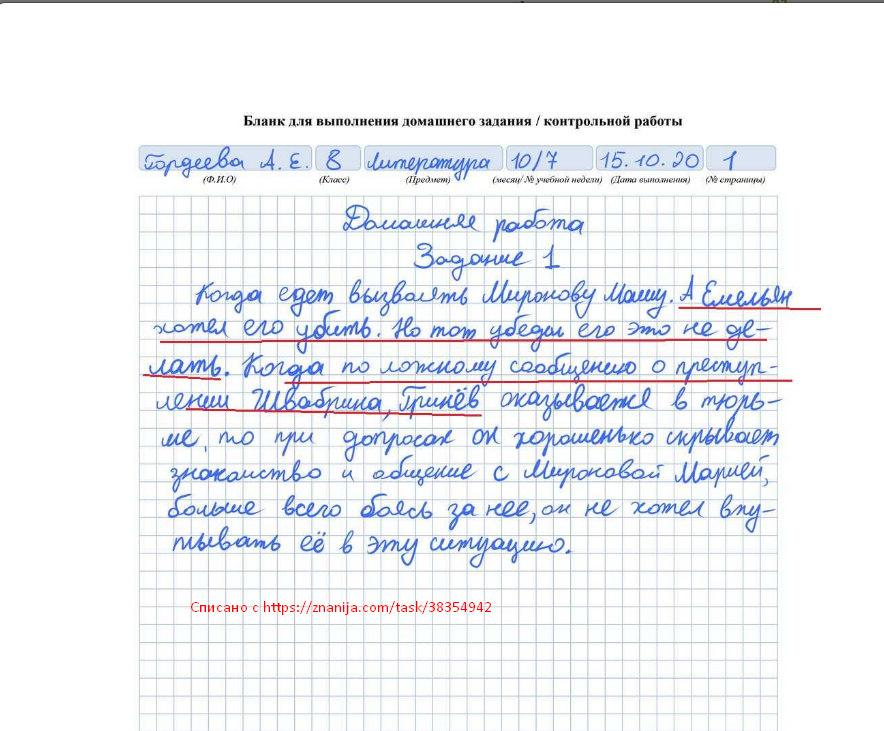 Бланк для выполнения домашнего задания / контрольной работы
Гордеева А. Е. 8 Литература 10/7 15.10.20 1
(Ф.И.О) (Класс) (Предмет) (месяц/ № учебной недели) (Дата выполнения) (№ страницы)
Домашняя работа
Задание 1
Когда едет вызволять Миронову Машу. А Емельян
хотел его убить. Но тот убедил его это не де-
лать. Когда по ложному сообщению о преступ-
лении Швабрина, Гринёв оказывается в тюрь-
ме, то при допросах он хорошенько скрывает
знакомство и общение с Мироновой Марией,
больше всего боясь за нее, он не хотел впу-
тывать её в эту ситуацию.
Списано с https://znanija.com/task/38354942